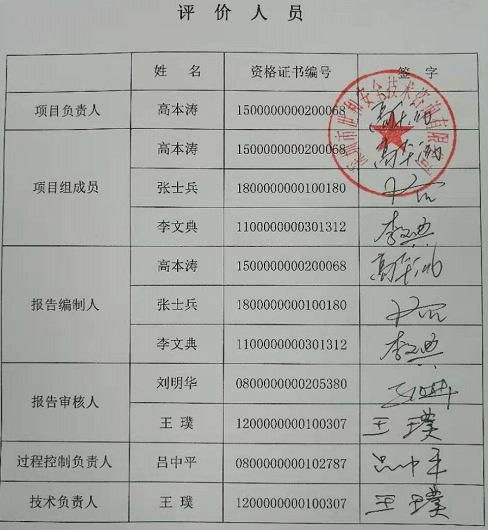 评价人员
姓名 资格证书编号 签字
项目负责人 高本涛 1500000000200068 高本涛
项目组成员 高本涛 1500000000200068 高本涛
张士兵 1800000000100180
李文典 1100000000301312 李文典
报告编制人 高本涛 1500000000200068 高本涛
张士兵 1800000000100180
李文典 1100000000301312 李文典
报告审核人 刘明华 0800000000205380
王璞 1200000000100307 王璞
过程控制负责人 吕中平 0800000000102787 吕中平
技术负责人 王璞 1200000000100307 王璞